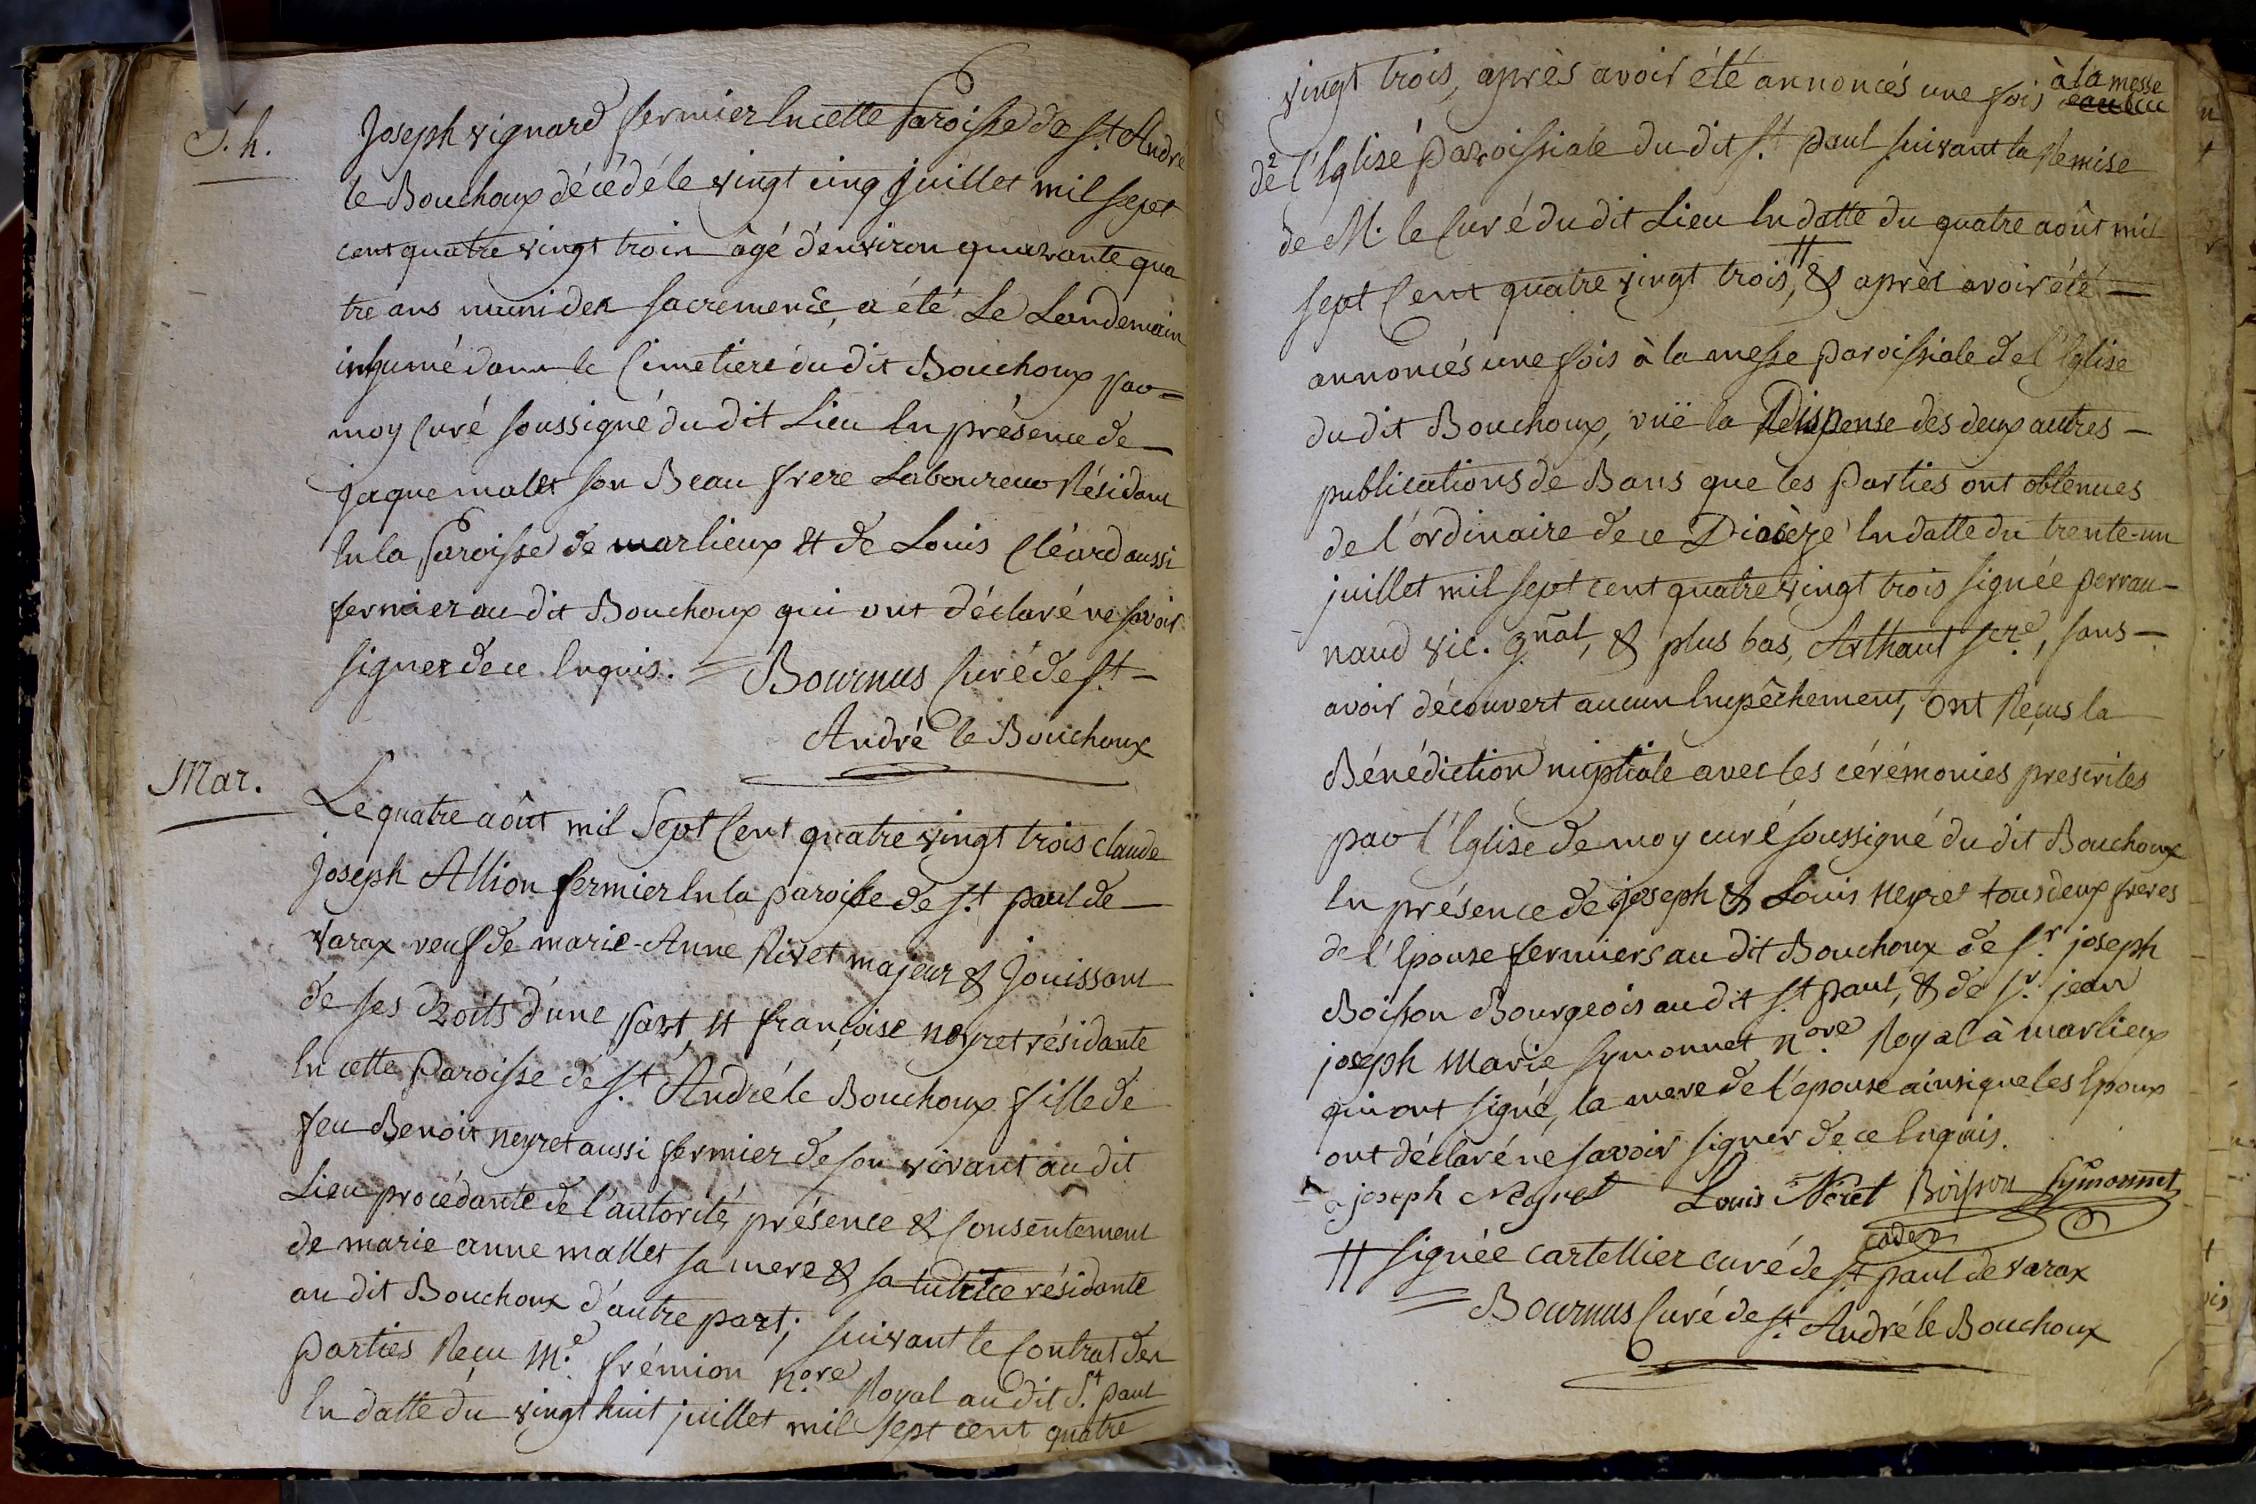 S. h.
Joseph vignard fermier En cette Paroisse de St. André
le Bouchoux décédé le vingt cinq juillet mil sept
cent quatre vingt trois âgé d'environ quarante qua
tre ans muni des sacremens, a été Le Lendemain
inhumé dans le Cimetiere du dit Bouchoux par =
moy Curé soussigné du dit Lieu En présence de
jaque malet son Beau frere Laboureur Résidant
En la Paroisse de marlieux et de Louis Cléard aussi
fermier au dit Bouchoux qui ont déclaré ne savoir
signer de ce Enquis. = Bournus Curé de St. –
André le Bouchoux
Mar.
Le quatre août mil Sept Cent quatre vingt trois claude
joseph Allion fermier En la paroisse de St. paul de
varax veuf de marie-Anne Rivet majeur & jouissant
de ses droits d'une part, et françoise neyret résidante
En cette Paroisse de St. André le Bouchoux fille de
feu Benoit neyret aussi fermier de son vivant au dit
Lieu procédante de l'autorité, présence & Consentement
de marie anne mallet sa mere & sa tutrice résidante
au dit Bouchoux d'autre part; suivant le Contrat des
parties Reçu Me. frémion nore Royal au dit St. paul
En datte du vingt huit juillet mil sept cent quatre
vingt trois, après avoir été annoncés une fois à la messe
de l'Eglise Paroissiale du dit St. paul suivant la Remise
de M. le Curé du dit Lieu En datte du quatre août mil
sept Cent quatre vingt trois, # & après avoir été —
annoncés une fois à la messe paroissiale de l'Eglise
du dit Bouchoux, vuë la Dispense des deux autres –
publications de Bans que les Parties ont obtenues
de l'ordinaire de ce Diocèze En datte du trente-un
juillet mil sept cent quatre vingt trois signée perrau-
naud vic. gñal, & plus bas, Arthaut scre, sans –
avoir découvert aucun Empêchement, ont Reçus la
Bénédiction nuptiale avec les cérémonies prescrites
par l'Eglise de moy curé soussigné du dit Bouchoux
En présence de joseph & Louis neyret tous deux freres
de l'Epouse fermiers au dit Bouchoux de Sr. joseph
Boisson Bourgeois au dit St. paul, & de Sr. jean
joseph Marie symonnet, nore. Royal à marlieux
qui ont signé, la mere de l'épouse ainsi que les Epoux
ont déclaré ne savoir signer de ce Enquis.
joseph Neyret Louis Neret Boisson Symonnet
# signée cartellier curé de St. paul de varax
Bournus Curé de St. André le Bouchoux